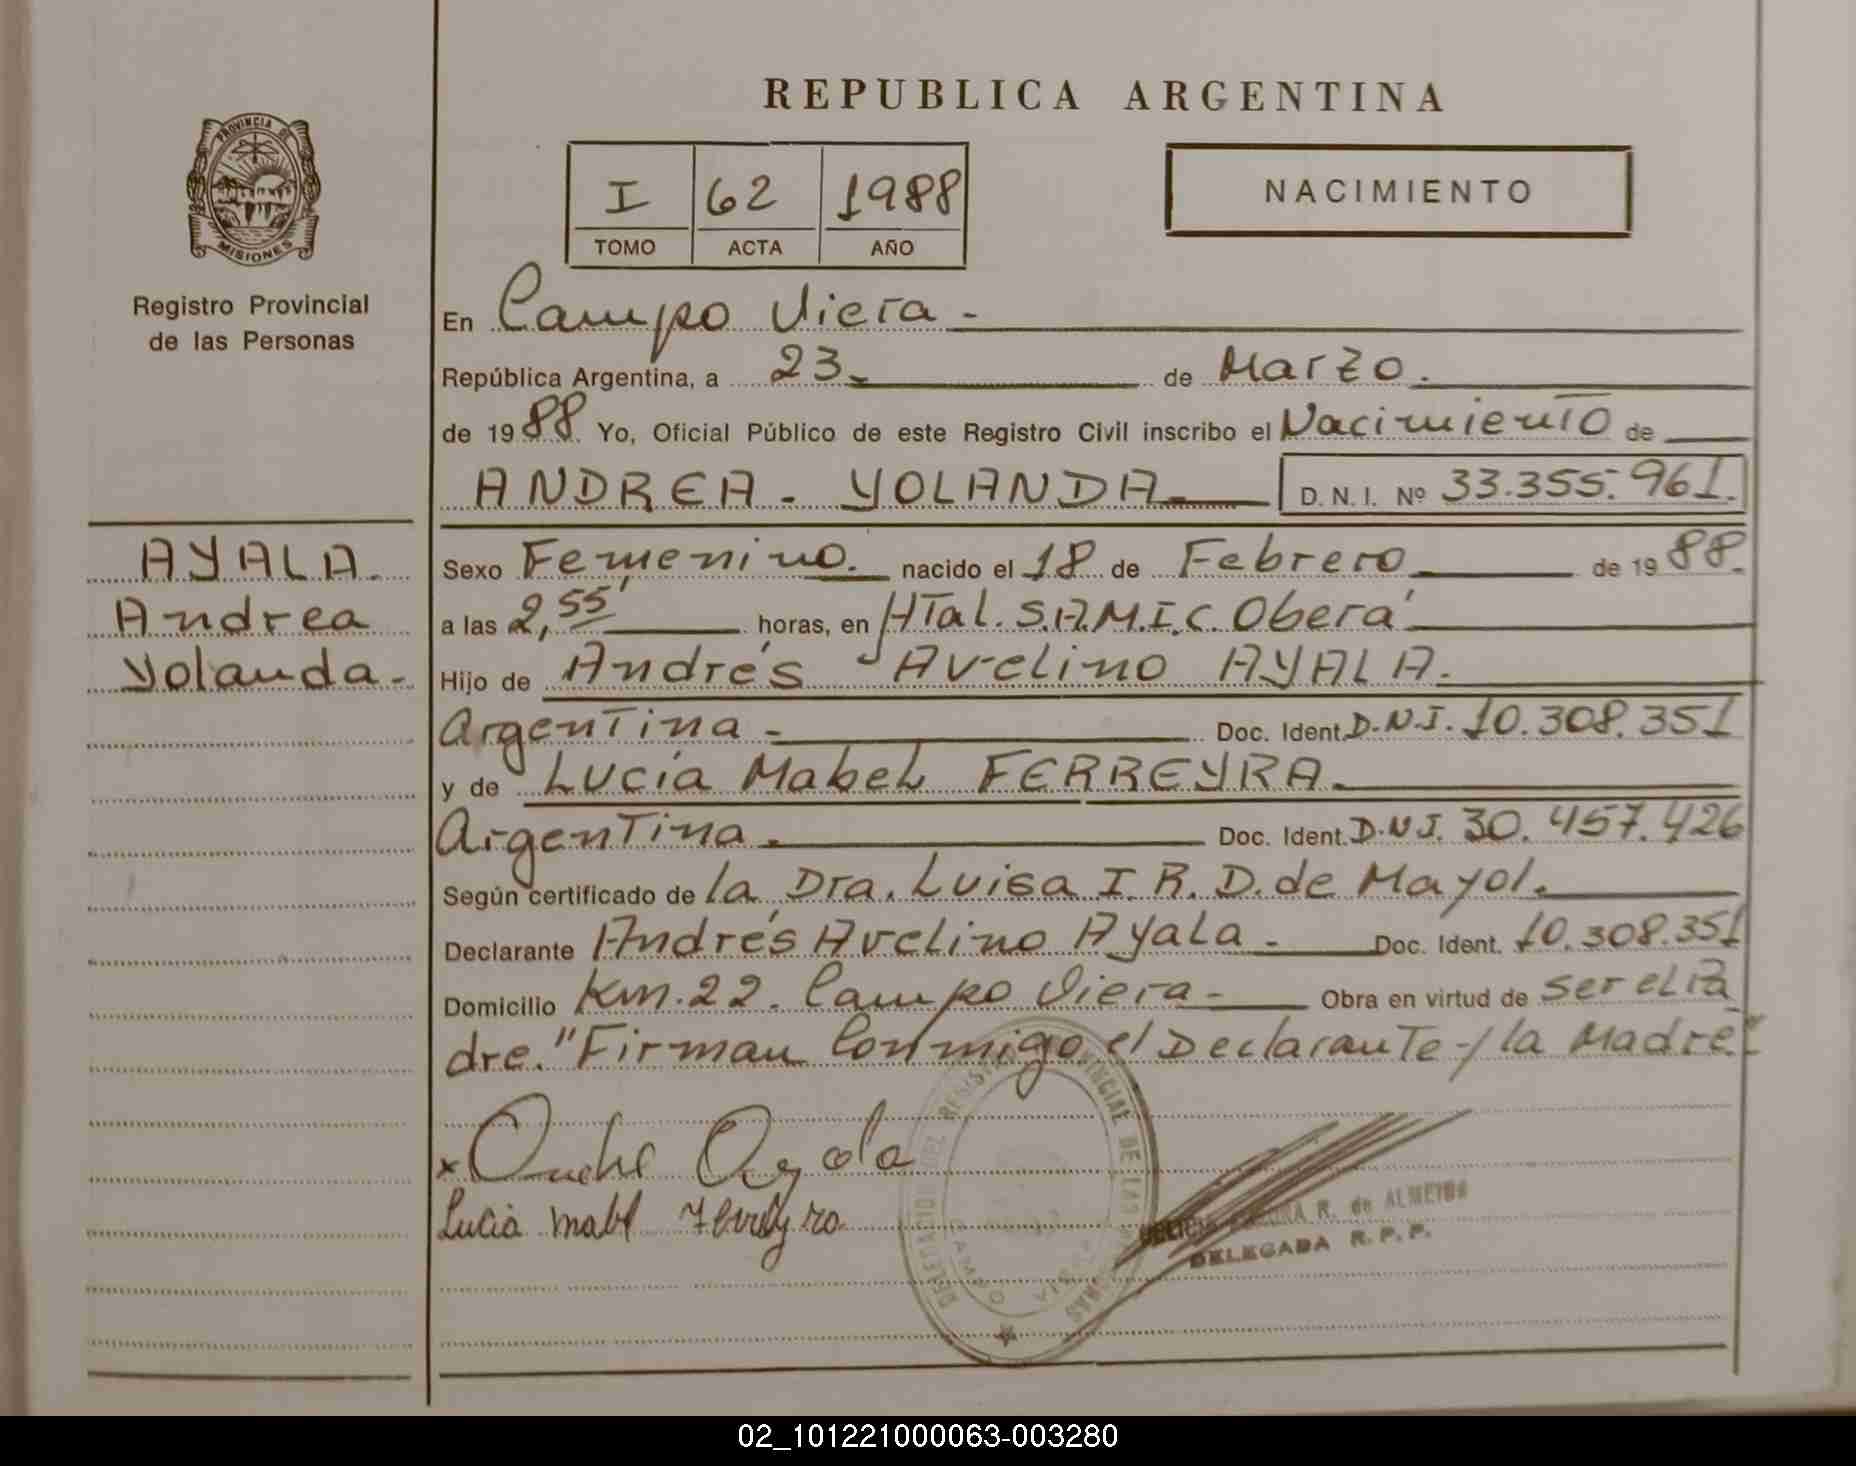 REPUBLICA ARGENTINA
PROVINCIA DE
MISIONES
Registro Provincial
de las Personas
I 62 1988
TOMO ACTA AÑO
NACIMIENTO
En Campo Viera -
República Argentina, a 23 - de Marzo.
de 1988. Yo, Oficial Público de este Registro Civil inscribo el Nacimiento de
ANDREA - YOLANDA - D. N. I. Nº 33.355.961.
AYALA.
Andrea
Yolanda -
Sexo Femenino. nacido el 18 de Febrero de 1988.
a las 2,55' horas, en HTal. S.A.M.I.C. Oberá
Hijo de Andrés Avelino AYALA.
Argentina - Doc. Ident. D.N.I. 10.308.351
y de Lucía Mabel FERREYRA.
Argentina. Doc. Ident. D.N.I. 30.457.426
Según certificado de la Dra. Luisa I. R. D. de Mayol.
Declarante Andrés Avelino Ayala - Doc. Ident. 10.308.351
Domicilio Km. 22. Campo Viera - Obra en virtud de ser el Pa
dre. "Firman Conmigo el Declarante y la Madre"
x Ayala
Lucia Mabel Ferreyra
DELEGACION DEL REGISTRO PROVINCIAL DE LAS PERSONAS
CAMPO VIERA
R. de ALMEIDA
DELEGADA R. P. P.
02_101221000063-003280